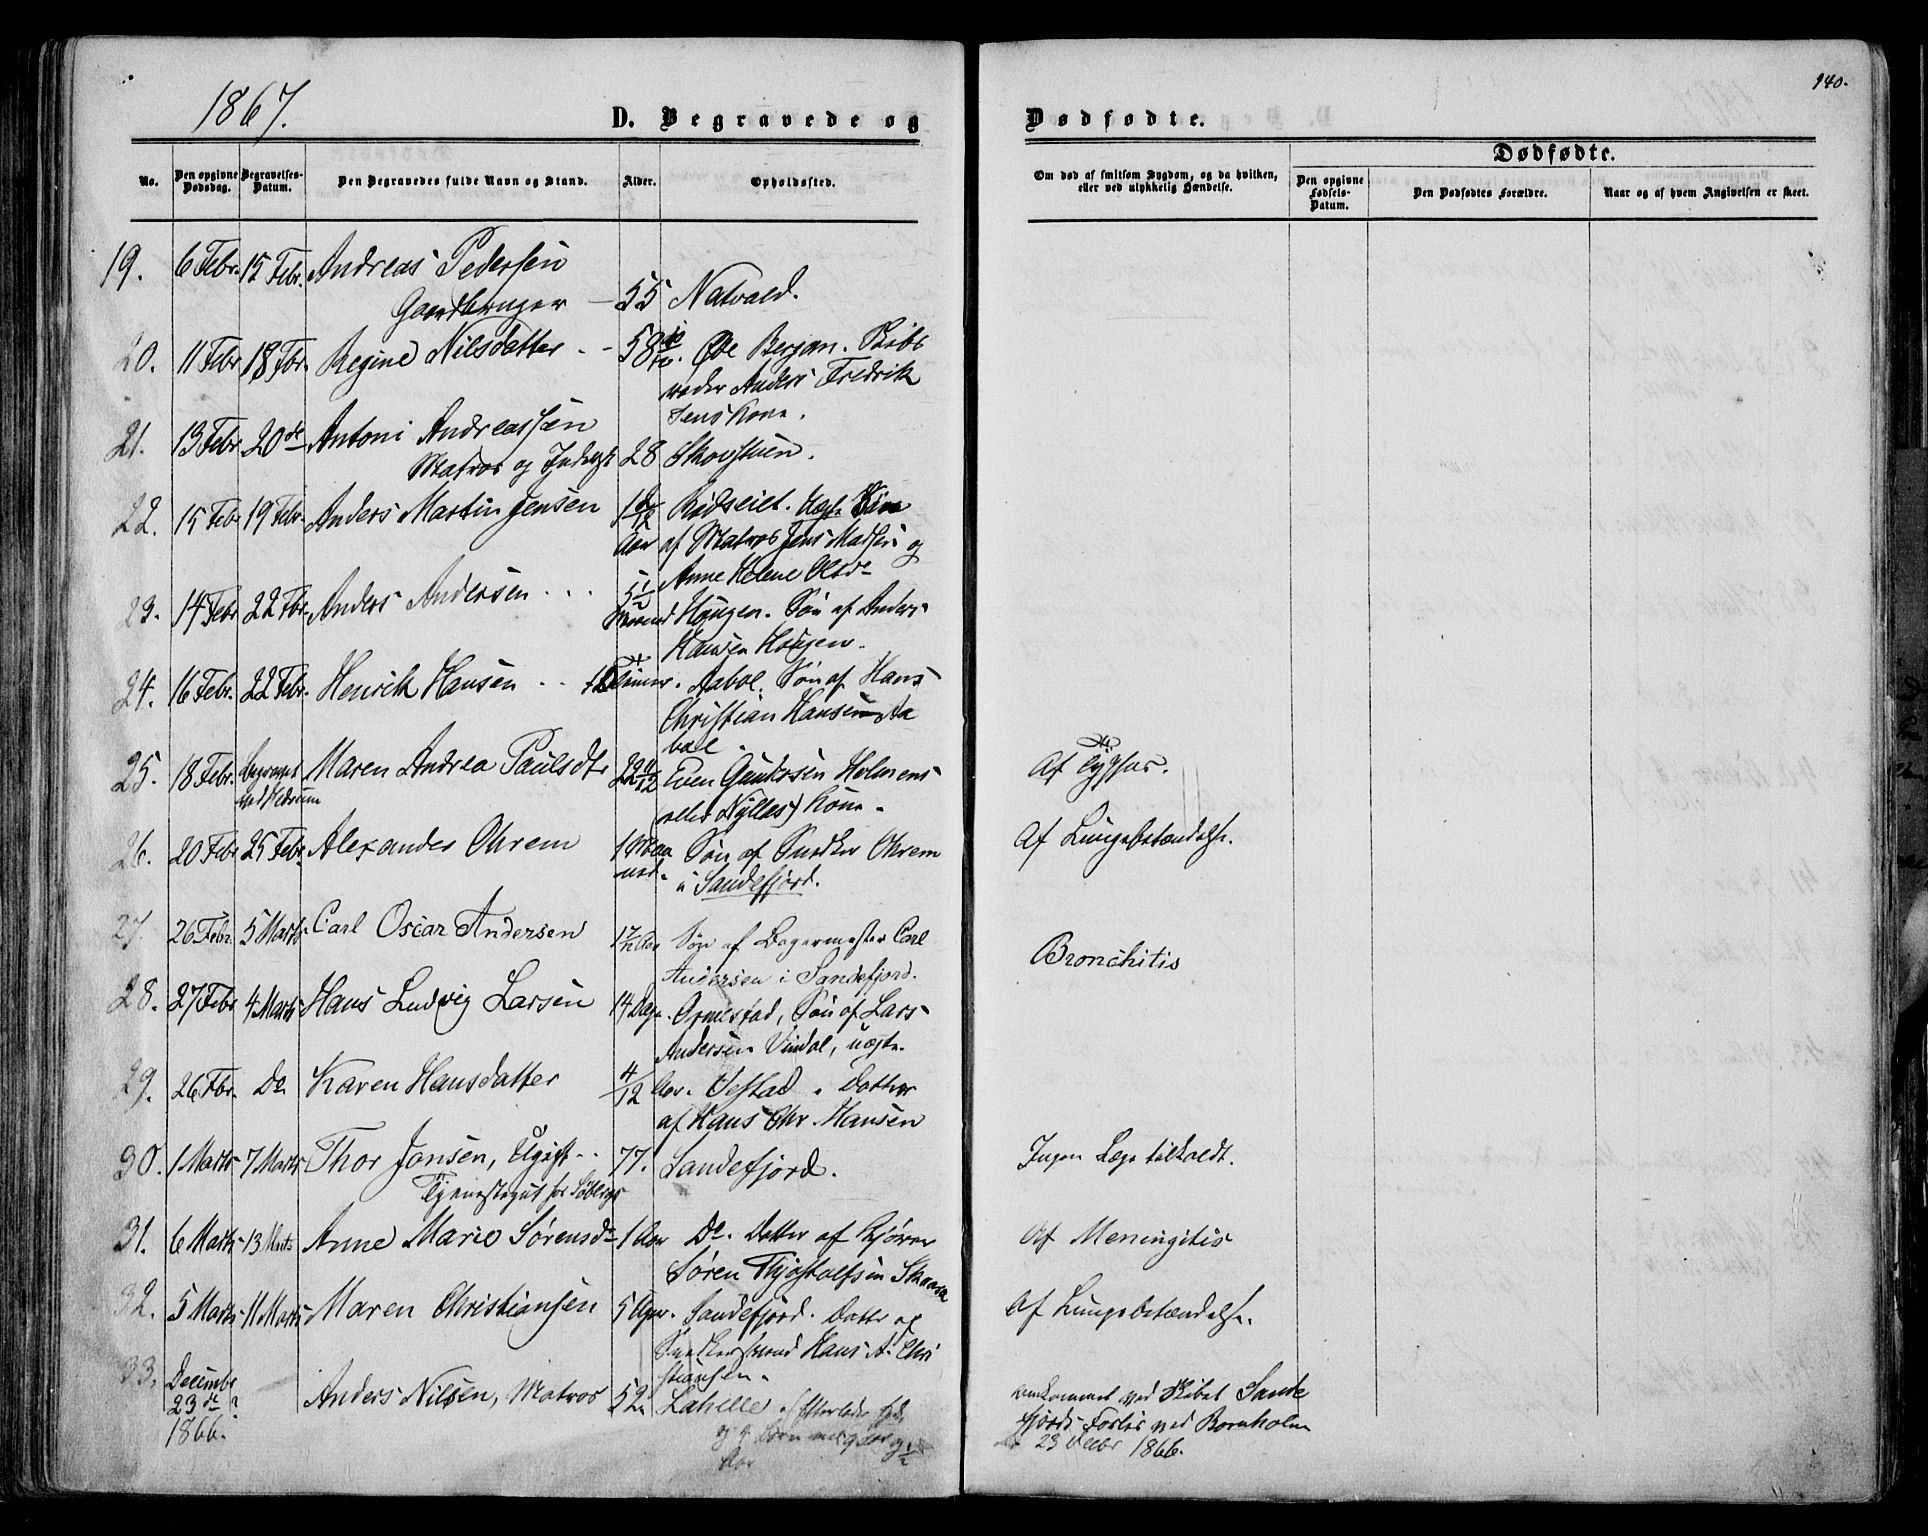 1867.
D. Begravede og
Dødfødte.
140.
No.
Den opgivne Dødsdag.
Begravelses-Datum.
Den Begravedes fulde Navn og Stand.
Alder.
Opholdssted.
Om død af smitsom Sygdom, og da hvilken, eller ved ulykkelig Hændelse.
Dødfødte.
Den opgivne Fødsels-Datum.
Den Dødfødtes Forældre.
Naar og af hvem Angivelsen er skeet.
19. 6 Febr. 15 Febr. Andreas Pedersen
Gaardbruger - 55 Natvald.
20. 11 Febr 18 Fbr. Regine Nilsdatter - 58 10/12. Øde Bergan. Skibs
reder Anders Fredrik
sens Kone.
21. 13 Febr 20de Antoni Andreassen
Matros og 28 Skovstuen.
22. 15 Febr 19 Febr. Anders Martin Jensen 1 /12 Rødseiet. Søn
Aar af Matros Jens Madsen og
Anne Helene Olsd
23. 14 Febr 22 Fbr. Anders Andersen 5 1/2
Maaned Haugen. Søn af Anders
Hansen Haugen.
24. 16 Febr. 22 Febr. Henrik Hansen 12 Timer. Aabol. Søn af Hans
Christian Hansen Aa
bol.
25. 18 Febr. begravet
ved Hedrum Maren Andrea Paulsdtr 22 11/12 Even Holmens
(eller Nylles) Kone.
Af Typhus.
26. 20 Febr 25 Febr Alexander Ohrem 1 Maa
ned. Søn af Snedker Ohrem
i Sandefjord.
Af Lungebetændelse.
27. 26 Febr. 5 Marts Carl Oscar Andersen 1 7/12 Aar Søn af Bagermester Carl
Andersen i Sandefjord.
Bronchitis
28. 27 Febr 4 Marts Hans Ludvig Larsen 14 Dage. Ormestad, Søn af Lars
Andersen Vindal, uægte.
29. 26 Fbr. Do Karen Hansdatter 4/12 Aar. Vestad. Datter
af Hans Chr. Hansen
30. 1 Marts 7 Marts Thor Jansen, Ugift 77. Sandefjord.
Tjenestegut hos Søbergs
Ingen Læge tilkaldt.
31. 6 Marts 13 Marts Anne Marie Sørensd 1 Aar Do. Datter af Kjører
Søren Thjostolfsen
Af Meningitis
32. 5 Marts 11 Marts Maren Christiansen 5 Aar. Sandefjord. Datter af
Hans A. Chri
stiansen.
Af Lungebetændelse.
33. December
23de
1866. ? Anders Nilsen, Matros 52. Lahelle. (Efterlader
og
Aar
omkommet ved Skibet Sande
fjords Forlis ved Bornholm
23 1866.